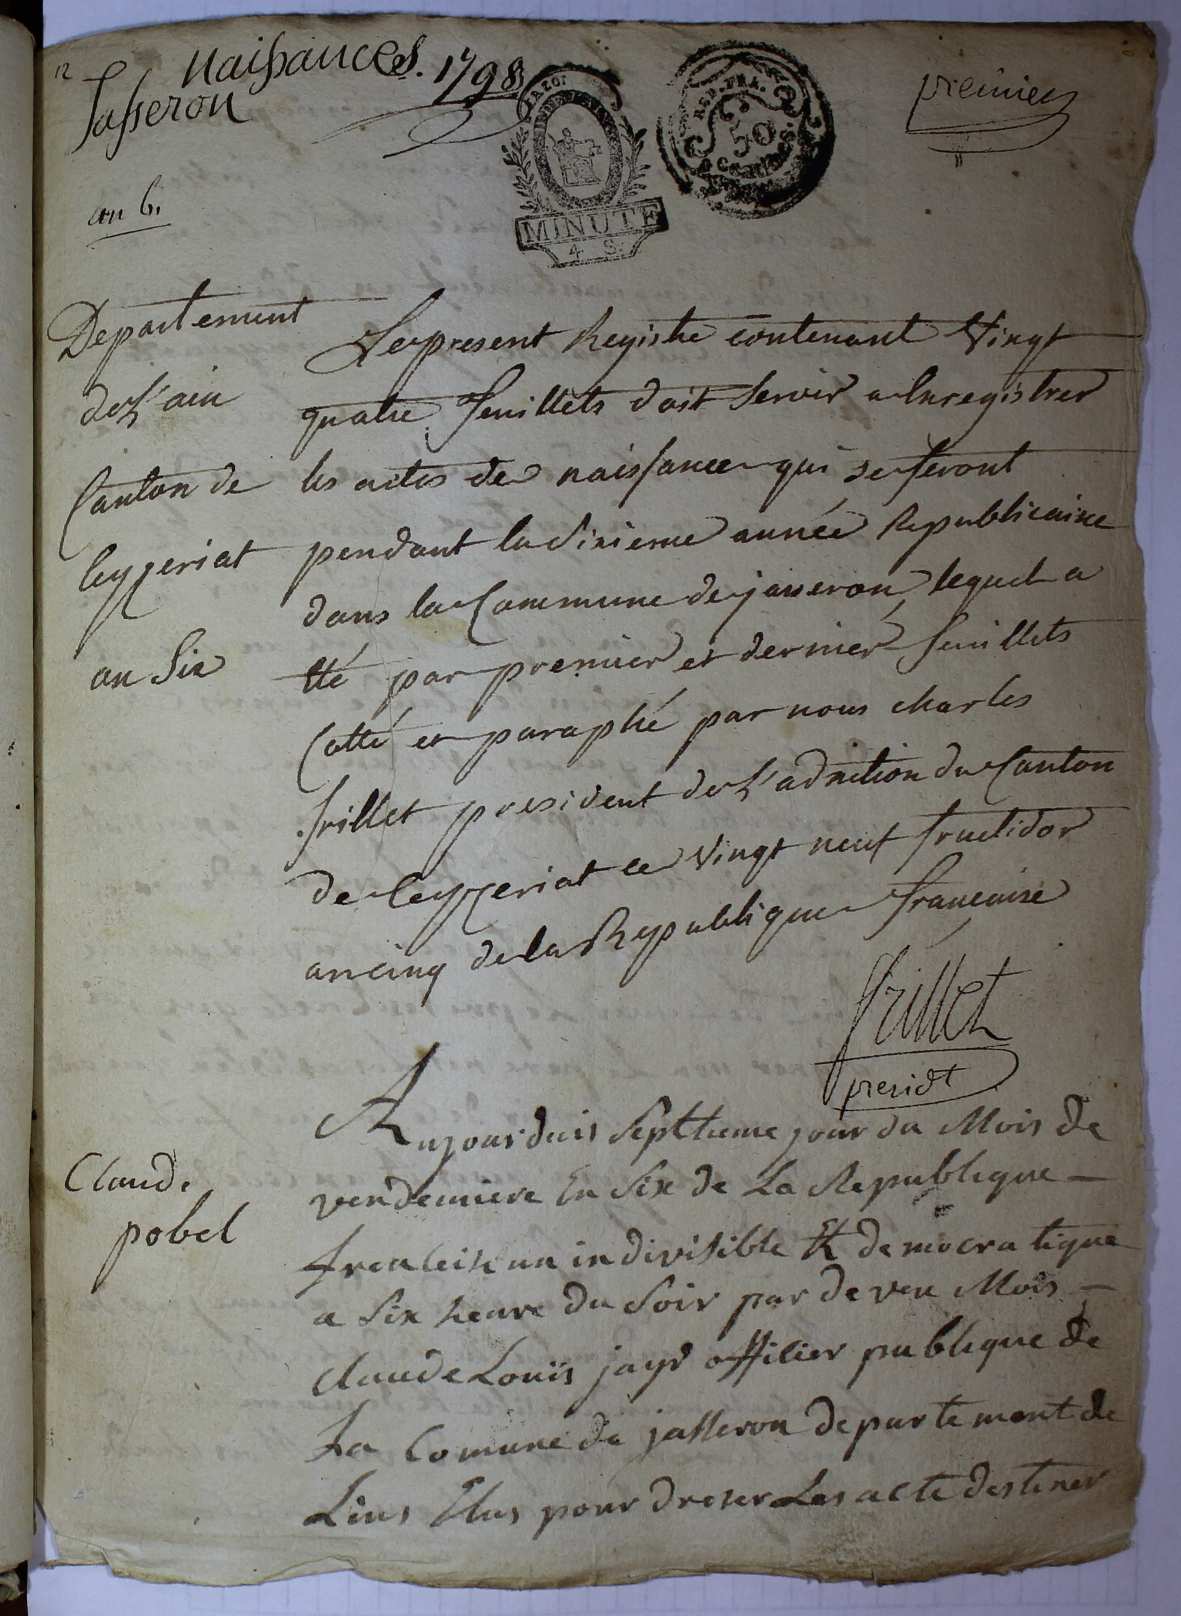 12
Naissances. 1798
Jasseron
premier
an 6.
REP. FRA.
50
Centimes
MINUTE
4 S.
Departement
de L'ain
Canton de
Ceyzeriat
an Six
Le present Registre contenant Vingt
quatre feuillets doit Servir a Enregistrer
les actes de naissance qui se feront
pendant la Sixieme année Republicaine
dans la Commune de jasseron, lequel a
été par premier et dernier feuillets
Cotté et paraphé par nous charles
frillet president de L'admtion du Canton
de Ceyzeriat ce Vingt neuf fructidor
an cinq de la Republique francaise
frillet
presidt
Claude
pobel
Aujourduis Septtieme jour du Mois de
vendemiere En Six de La Republique
frenceise un indivisible Et democratique
a Six heure du Soir par deven Mois
Claude Louis jayr offilier publique de
La Comune de jasseron departement de
Lins Elus pour dreser Les acte destiner